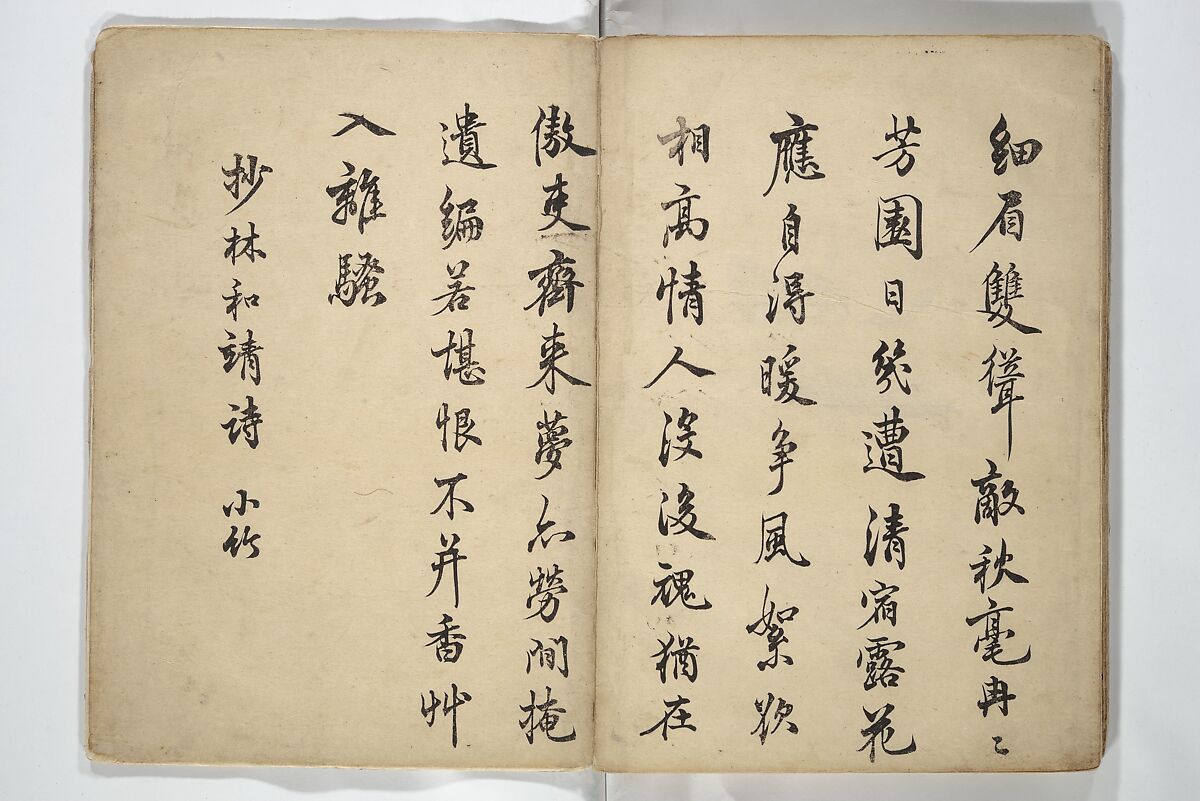 細眉雙聳敵秋毫冉〻
芳園日幾遭清宿露花
應自得暖爭風絮欲
相高情人沒後魂猶在
傲吏齊来夢亦勞閒掩
遺編若堪恨不并香艸
入離騷
抄林和靖詩 小竹